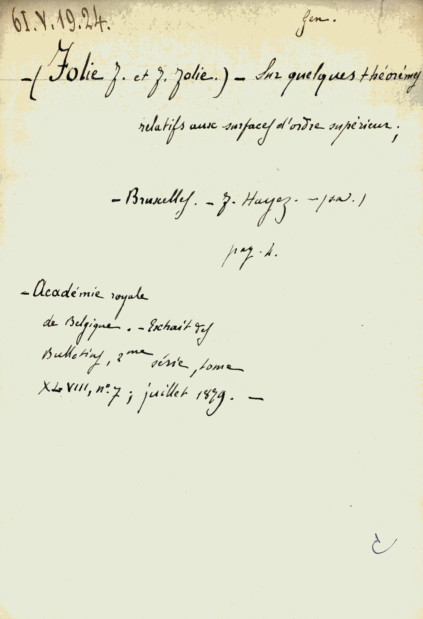 61.V.19.24.
Gen.
-(Folie F. et F. Folie.) - Sur quelques théorèmes
relatifs aux surfaces d'ordre supérieur;
- Bruxelles. - F. Hayez. - (sa.)
pag. 4.
- Académie royale
de Belgique. - Extrait des
Bulletins, 2me série, tome
XLVIII, n.° 7; juillet 1879. -